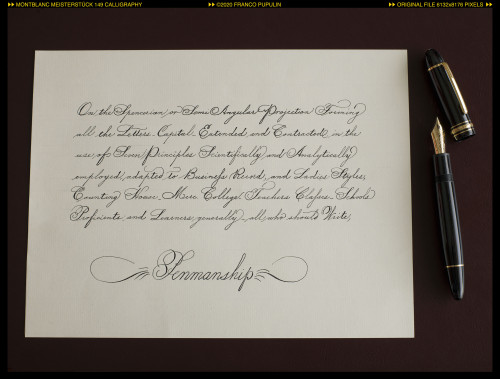 MONTBLANC MEISTERSTÜCK 149 CALLIGRAPHY
©2020 FRANCO PUPULIN
ORIGINAL FILE 6132x8176 PIXELS
On the Spencerian, or Semi Angular Projection Forming
all the Letters, Capital, Extended, and Contracted, in the
use, of Seven Principles Scientifically and Analytically
employed, adapted to Business Record, and Ladies Styles,
Counting House, Merc. College Teachers Schools
Proficients and Learners, generally, all who should Write,
Penmanship